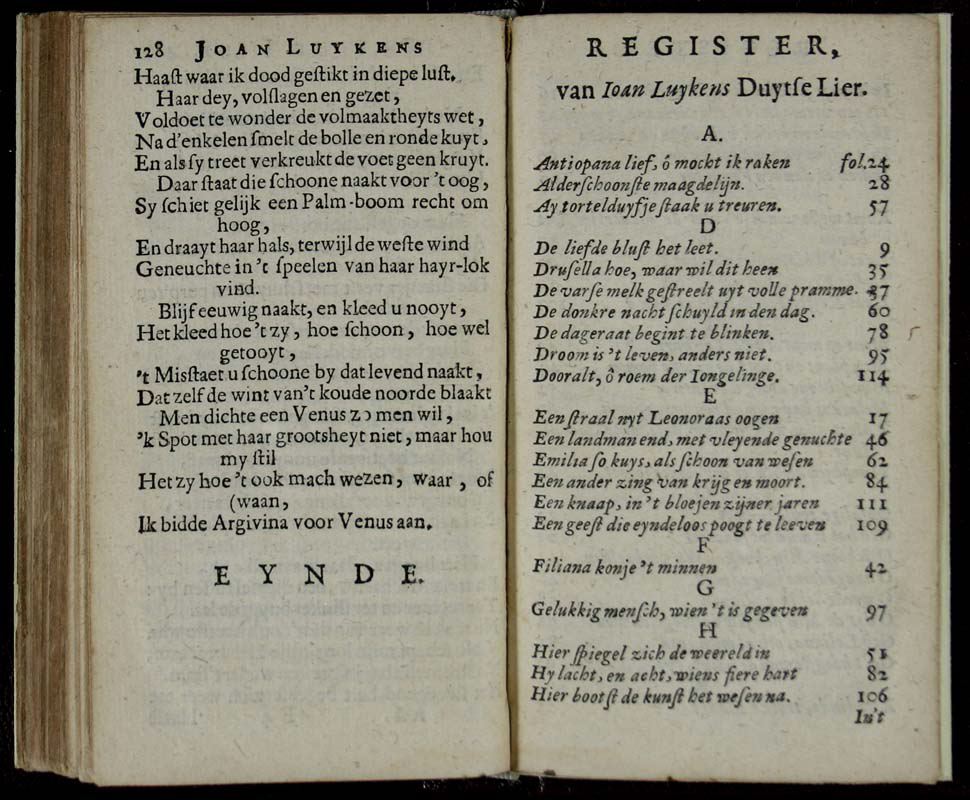 128 JOAN LUYKENS
Haaſt waar ik dood geſtikt in diepe luſt.
Haar dey, volſlagen en gezet,
Voldoet te wonder de volmaaktheyts wet,
Na d'enkelen ſmelt de bolle en ronde kuyt,
En als ſy treet verkreukt de voet geen kruyt.
Daar ſtaat die ſchoone naakt voor 't oog,
Sy ſchiet gelijk een Palm-boom recht om
hoog,
En draayt haar hals, terwijl de weſte wind
Geneuchte in 't ſpeelen van haar hayr-lok
vind.
Blijf eeuwig naakt, en kleed u nooyt,
Het kleed hoe 't zy, hoe ſchoon, hoe wel
getooyt,
't Misſtaet u ſchoone by dat levend naakt,
Dat zelf de wint van't koude noorde blaakt
Men dichte een Venus zo men wil,
'k Spot met haar grootsheyt niet, maar hou
my ſtil
Het zy hoe 't ook mach wezen, waar, of
(waan,
Ik bidde Argivina voor Venus aan.
EYNDE.
REGISTER,
van Ioan Luykens Duytſe Lier.
A.
Antiopana lief, ô mocht ik raken fol.24
Alderſchoonſte maagdelijn. 28
Ay tortelduyfje ſtaak u treuren. 57
D
De liefde bluſt het leet. 9
Druſella hoe, waar wil dit heen 35
De varſe melk geſtreelt uyt volle pramme. 37
De donkre nacht ſchuyld in den dag. 60
De dageraat begint te blinken. 78
Droom is 't leven, anders niet. 95
Dooralt, ô roem der Iongelinge. 114
E
Een ſtraal uyt Leonoraas oogen 17
Een landman end, met vleyende genuchte 46
Emilia ſo kuys, als ſchoon van weſen 62
Een ander zing van krijg en moort. 84
Een knaap, in 't bloejen zijner jaren 111
Een geeſt die eyndeloos poogt te leeven 109
F
Filiana kon je 't minnen 42
G
Gelukkig menſch, wien 't is gegeven 97
H
Hier ſpiegel zich de weereld in 51
Hy lacht, en acht, wiens fiere hart 82
Hier bootſt de kunſt het weſen na. 106
In't